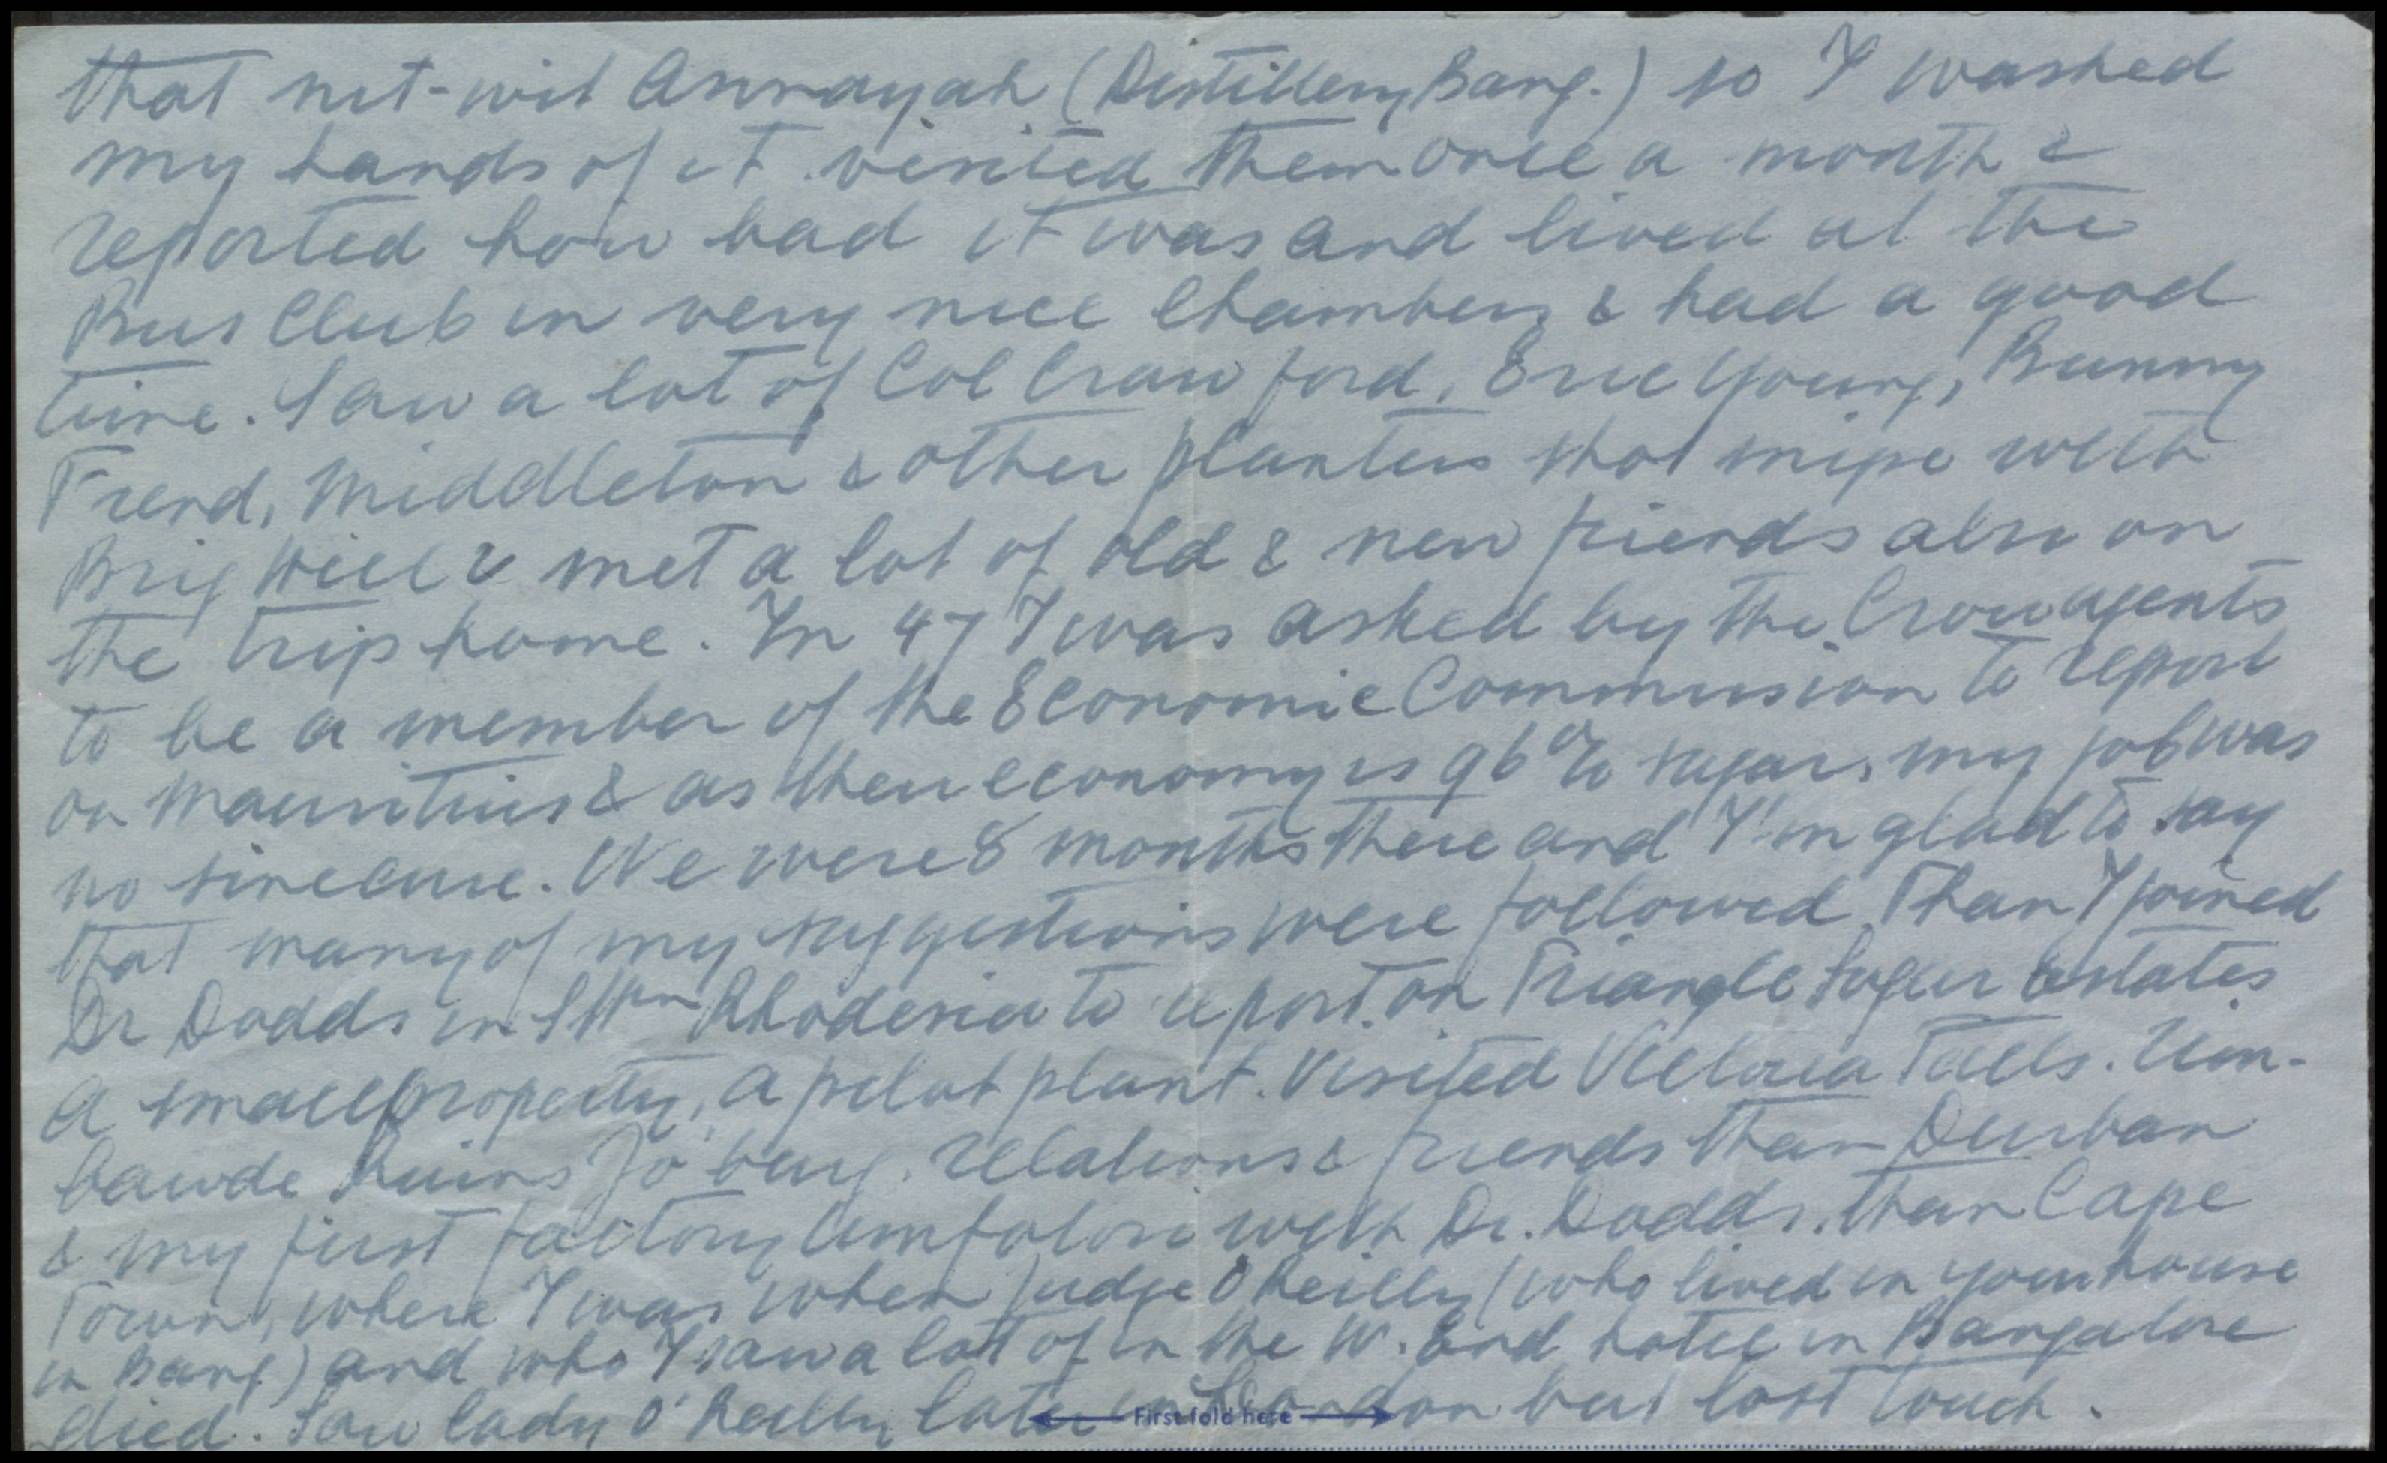 that nit-wit Annayah (Distillery Bang.) so I washed
my hands of it. visited them once a month &
reported how bad it was and lived at the
Bus Club in very nice Chambers & had a good
time. Saw a lot of Col Crawford, Eric Young, Bunny
Frend, Middleton & other planters shot snipe with
Brig Hill & met a lot of old & new friends also on
the trip home. In 47 I was asked by the Crowagents
to be a member of the Economic Commission to report
on Mauritius & as their economy is 96% sugar, my job was
no sinecure. We were 8 months there and I'm glad to say
that many of my suggestions were followed. Than I joined
Dr Dodds in Sthrn Rhodesia to report on Triangle Sugar Estates
A small property, a pilot plant. Visited Victoria Falls. Zim-
bawde Ruins Jo'burg. relations & friends than Durban
& my first factory Umfolosi with Dr. Dodds. than Cape
Town, where I was when Judge O'Reilly (who lived in your house
in Bang) and who I saw a lott of in the W. End hotel in Bangalore
died. Saw lady O'Reilly later in London but lost touch.
First fold here